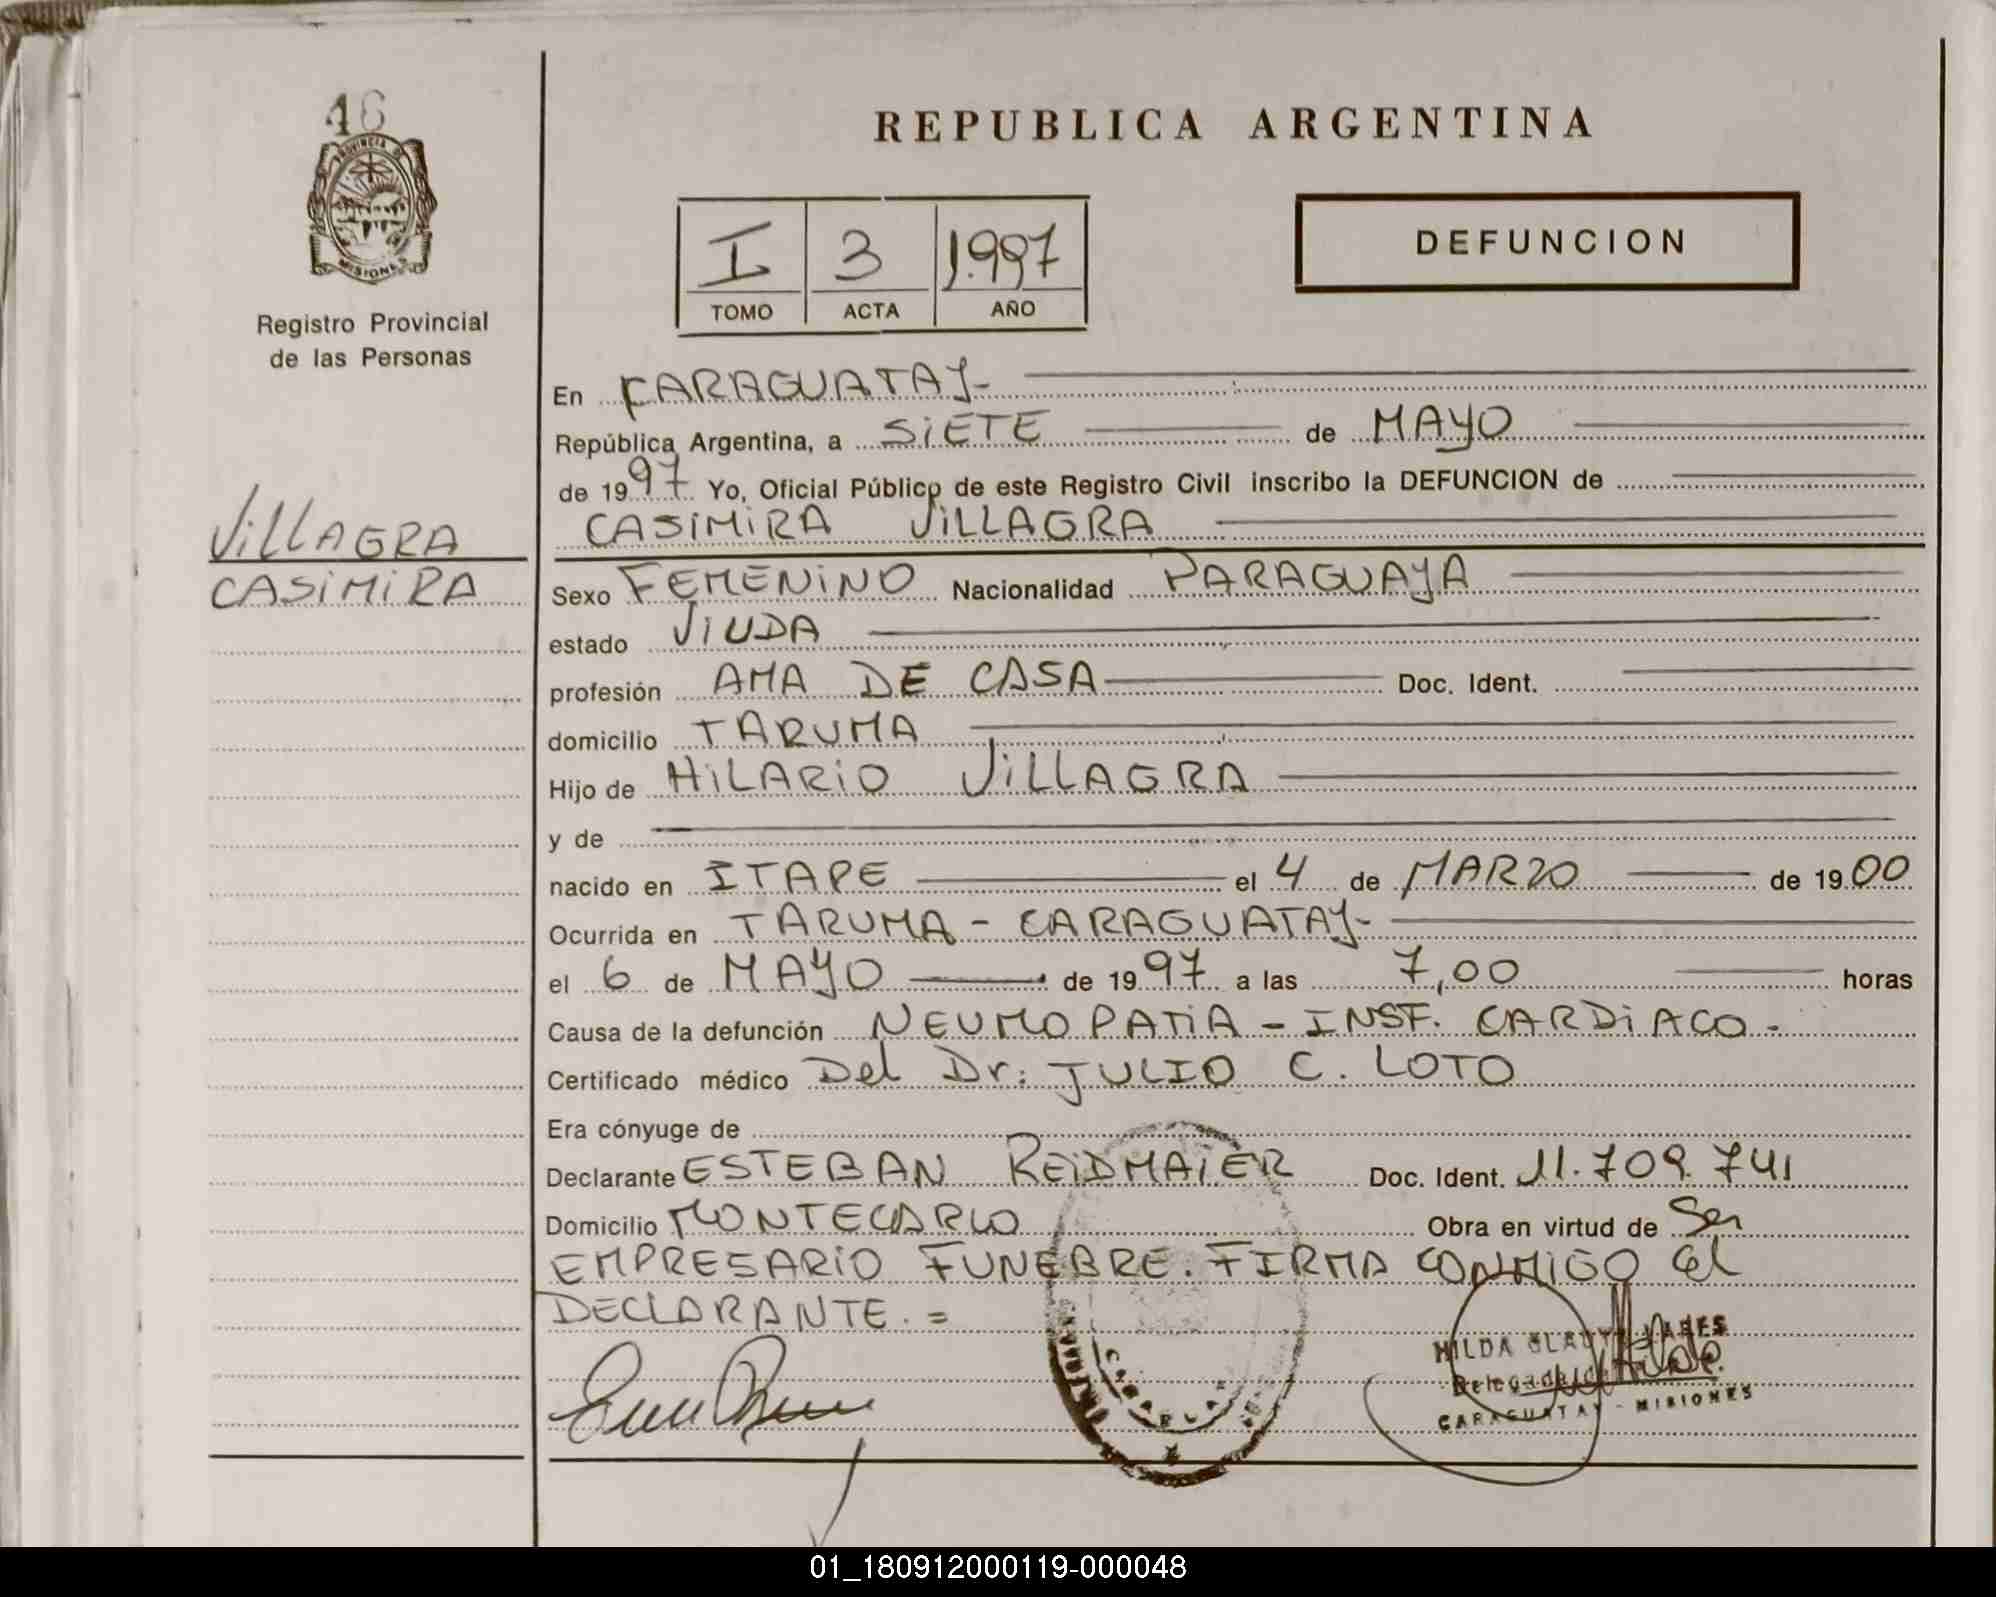 16
PROVINCIA DE
MISIONES
Registro Provincial
de las Personas
VILLAGRA
CASIMIRA
REPUBLICA ARGENTINA
I 3 1.997
TOMO ACTA AÑO
DEFUNCION
En CARAGUATAY-
República Argentina, a SIETE de MAYO
de 1997 Yo, Oficial Público de este Registro Civil inscribo la DEFUNCION de
CASIMIRA VILLAGRA
Sexo FEMENINO Nacionalidad PARAGUAYA
estado VIUDA
profesión AMA DE CASA Doc. Ident.
domicilio TARUMA
Hijo de HILARIO VILLAGRA
y de
nacido en ITAPE el 4 de MARZO de 1900
Ocurrida en TARUMA - CARAGUATAY-
el 6 de MAYO de 1997 a las 7,00 horas
Causa de la defunción NEUMOPATIA - INSF. CARDIACO.
Certificado médico Del Dr: JULIO C. LOTO
Era cónyuge de
Declarante ESTEBAN REIDMAIER Doc. Ident. 11.709.741
Domicilio MONTECARLO Obra en virtud de Ser
EMPRESARIO FUNEBRE. FIRMA CONMIGO El
DECLARANTE. =
HILDA
CARAGUATAY - MISIONES
01_180912000119-000048